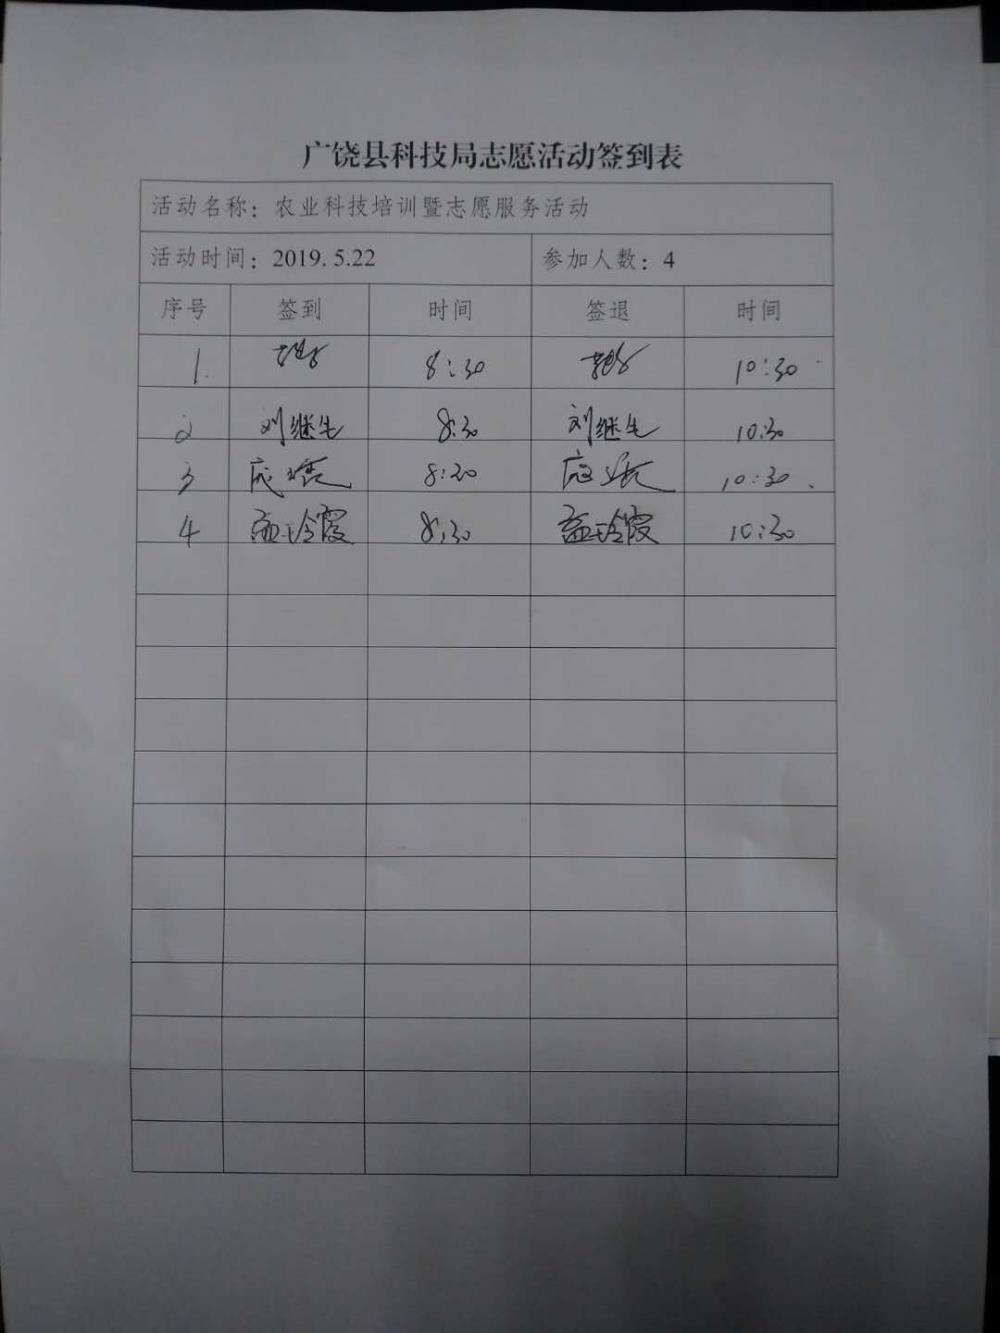 广饶县科技局志愿活动签到表
活动名称：农业科技培训暨志愿服务活动
活动时间：2019.5.22 参加人数：4
序号 签到 时间 签退 时间
1 8:30 10:30
2 刘继生 8:30 刘继生 10:30
3 8:30 10:30
4 孟玲霞 8:30 孟玲霞 10:30